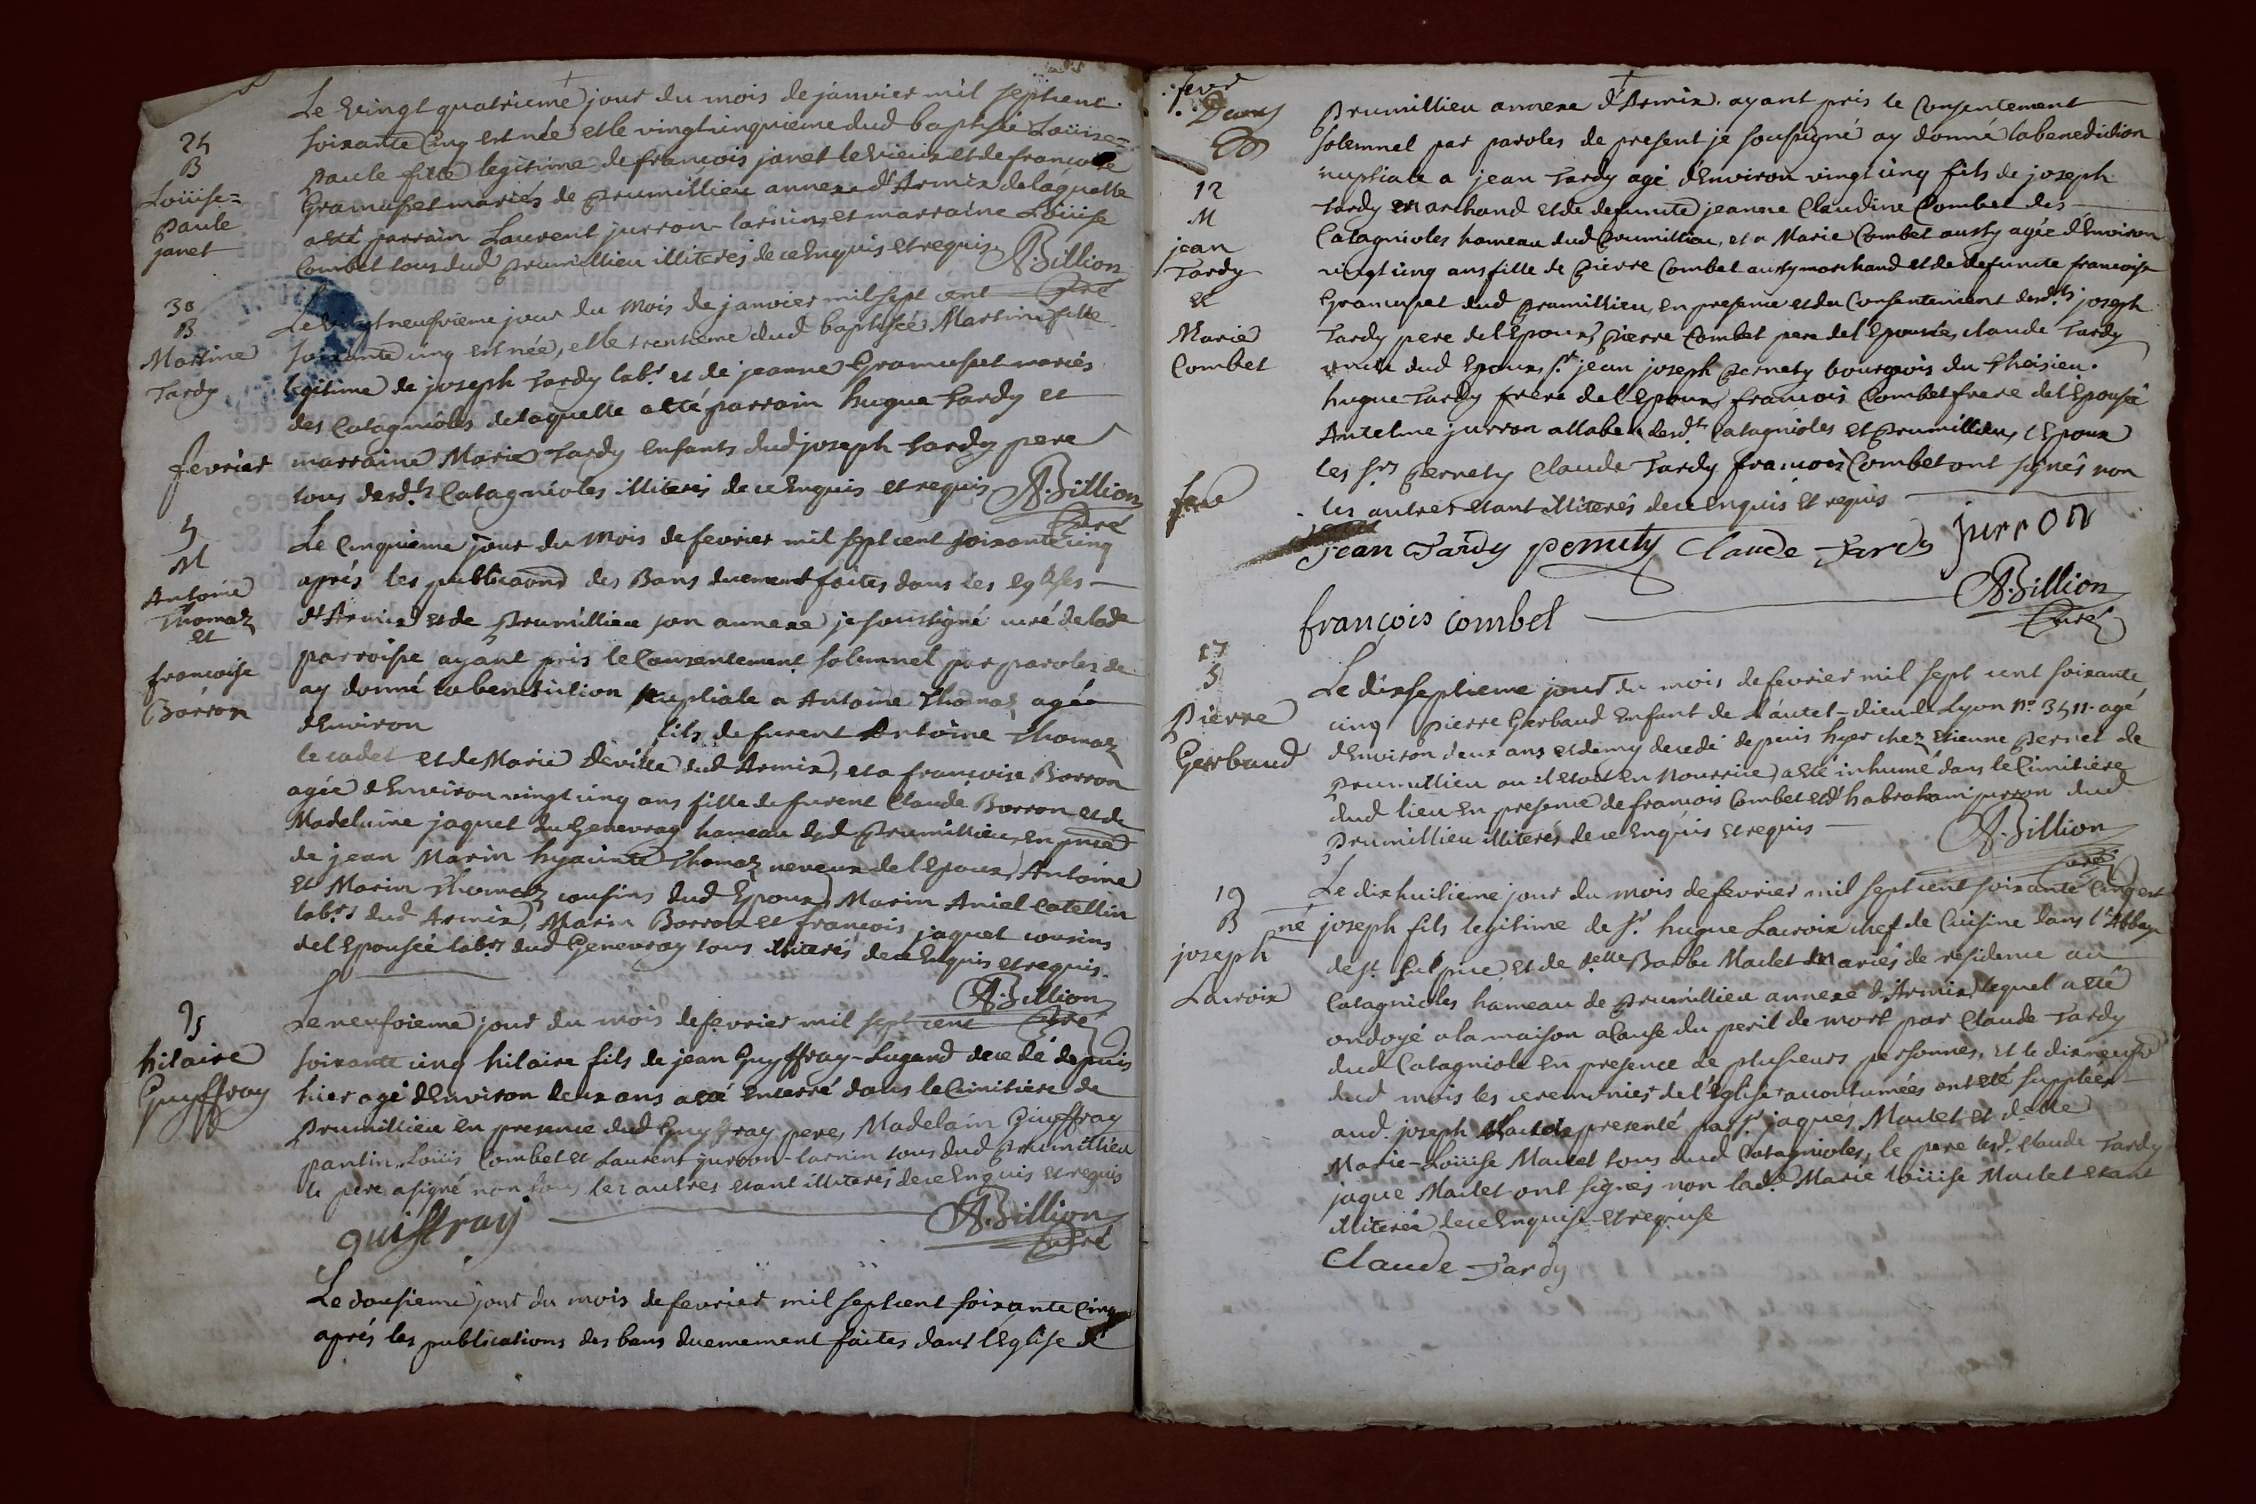 Le vingt quatrieme jour du mois de janvier mil septcent
soixante cinq est née et le vingt cinquieme dud baptisée Loüise=
25
B
Loüise=
Paule
janet
Paule fille legitime de françois janet le vieux et de françoise
Gramusset mariés de Prumillieu annexe d'Armix de laquelle
a eté parrain Laurent jurron-larnin, et marraine Loüise
Combet tous dud Prumillieu illiterés de ce Enquis et requis A. Billion
Curé
30
B
Martine
Tardy
Le vingt neufvieme jour du mois de janvier mil sept cent
soixante cinq est née, et le trentieme dud baptisée Martine fille
legitime de joseph Tardy labr. et de jeanne Gramusset mariés
des Catagnioles de laquelle a eté parrain hugue Tardy et
fevrier
marraine Marie Tardy Enfants dud joseph Tardy pere
tous desd.ts Catagnioles illiterés de ce Enquis et requis A. Billion
Curé
5
M
Antoine
Thomaz
et
françoise
Borron
Le Cinquieme jour du mois de fevrier mil sept cent soixante cinq
aprés les publicaons des Bans duement faites dans les eglises
d'Armix et de Prumillieu son annexe je soussigné curé de lade
parroisse ayant pris le Consentement solemnel par paroles de
ay donné la benediction nuptiale a Antoine Thomaz agée
dEnviron fils de furent Antoine Thomaz
le cadet et de Marie Deville dud Armix, et a françoise Borron
agée dEnviron vingt cinq ans fille de furent Claude Borron et de
Madelaine jaquet du Genevray hameau dud Prumillieu, en pnce
de jean Marin hyacinte Thomaz neveux de l'Epoux, Antoine
et Marin Thomaz cousins dud Epoux, Marin Aniel Catellin
labrs dud Armix, Marin Borron et françois jaquet cousins
de l'Epousée labrs dud Genevray tous illiterés de ce Enquis et requis.
A. Billion
Curé
9
S
hilaire
Guyffray
Le neufvieme jour du mois de fevrier mil sept cent
soixante cinq hilaire fils de jean Guyffray-Lugand decedé depuis
hier agé d'Environ deux ans a eté Enterré dans le Cimitiere de
Prumillieu en presence dud Guyffray pere, Madelain Guyffray
pantin, Loüis Combet et Laurent jurron-larnin tous dud Prumillieu
le pere a signé non les autres etant illiterés de ce Enquis et requis
guiffray A. Billion
Curé
Le dousieme jour du mois de fevrier mil sept cent soixante Cinq
aprés les publications des bans duemement faites dans l'Eglise de
fevr
12
M
jean
Tardy
et
Marie
Combet
Prumillieu annexe d'Armix. ayant pris le Consentement
solemnel par paroles de present je soussigné ay donné la benediction
nuptiale a jean Tardy agé d'Environ vingt cinq fils de joseph
Tardy marchand et de defuncte jeanne Claudine Combet des
Catagnioles hameau dud Prumillieu, et a Marie Combet aussy agée d'Environ
vingt cinq ans fille de Pierre Combet aussy marchand et de defuncte françoise
Gramusset dud Prumillieu, en presence et du Consentement desd.ts joseph
Tardy pere de l'Epoux, Pierre Combet pere de l'Epousée, claude Tardy
oncle dud Epoux, sr. jean joseph Pernety bourgeois du Theisieu.
hugue Tardy frere de l'Epoux, françois Combet frere de l'Epousée
Antelme jurron allabe desd.ts Catagnioles et Prumillieu, l'Epoux
les srs Pernety Claude Tardy françois Combet ont signés non
les autres etant illiterés de ce Enquis et requis
jean Tardy pernety Claude Tardy jurron
A. Billion
françois combet
Curé
17
S
Pierre
Gerbaud
Le dixseptieme jour du mois de fevrier mil sept cent soixante
cinq Pierre Gerbaud Enfant de l'autel-dieu de Lyon no. 3511. agé
d'Environ deux ans et demy decedé depuis hyer chez Etienne Pernet de
Prumillieu ou il etoit en Nourrice a eté inhumé dans le Cimitiere
dud lieu en presence de françois Combet et d'habraham jurron dud
Prumillieu illiterés de ce Enquis et requis A. Billion
Curé
19
B
joseph
Lacroix
Le dixhuitieme jour du mois de fevrier mil sept cent soixante Cinq est
né joseph fils legitime de sr. hugue Lacroix chef de Cuisine dans l'Abbaye
de st. Sulpice et de delle Barbe Maclet mariés de residence au
Catagnioles hameau de Prumillieu annexe d'Armix, lequel a eté
ondoyé a la maison a Cause du peril de mort par Claude Tardy
dud Catagniole en presence de plusieurs personnes, et le dixneuf
dud mois les ceremonies de l'Eglise accoutumées ont eté supplées
aud. joseph presenté par sr. jaques Maclet et delle
Marie-Loüise Maclet tous dud Catagnioles, le pere led. claude Tardy
jaque Maclet ont signés non lade Marie loüise Maclet etant
illiterée de ce Enquise et requise
Claude Tardy